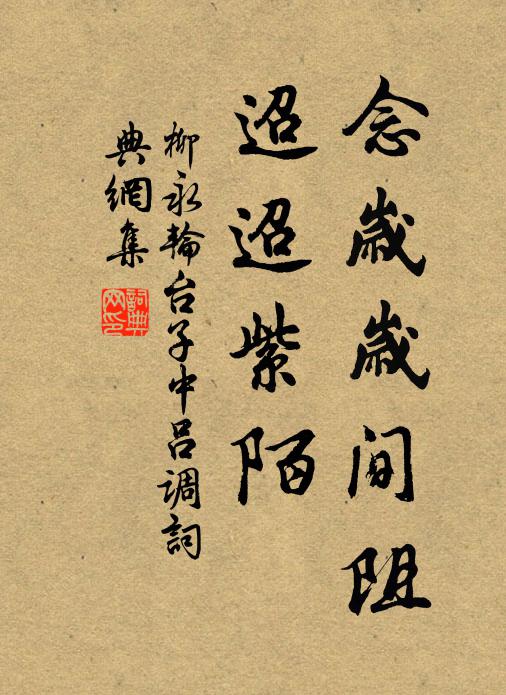 念歲歲间阻
迢迢紫陌
柳永輪台子中吕调詞
典網集
詞典
网印